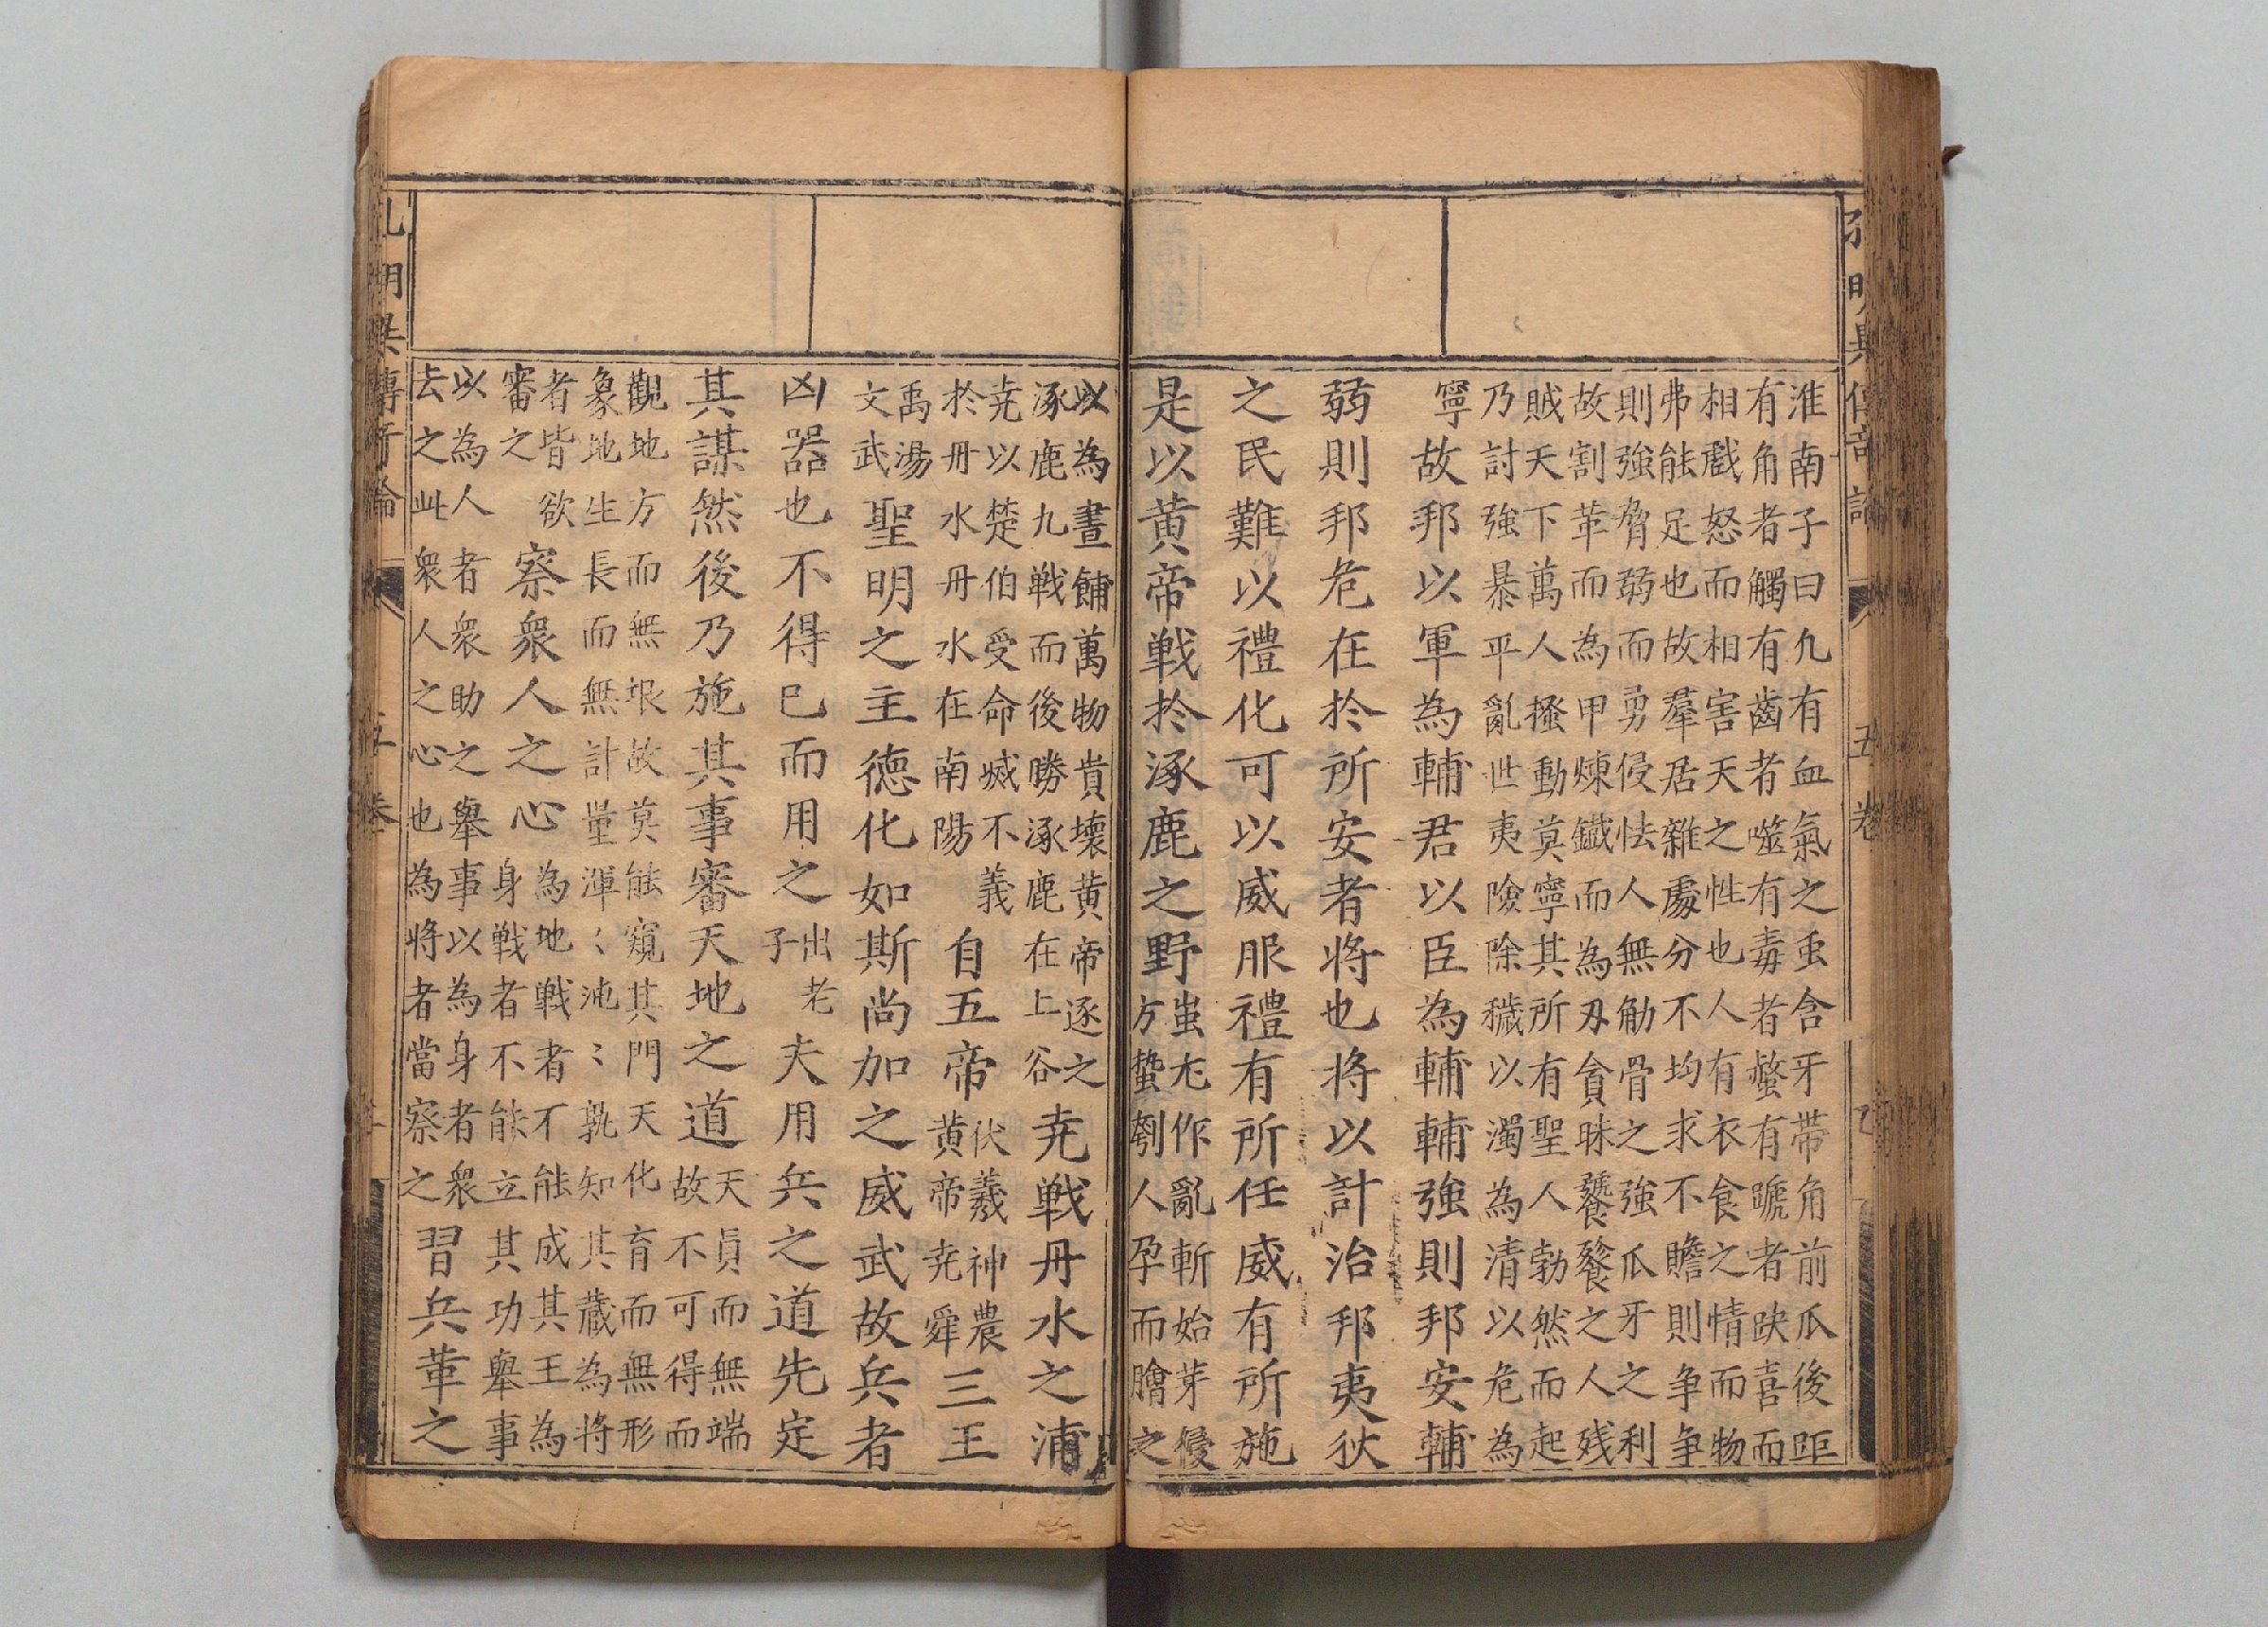 五卷
淮南子曰凢有血氣之䖝含牙帶角前爪後距
有角者觸有齒者噬有毒者螫有蹏者趹喜而
相戲怒而相害天之性也人有衣食之情而物
弗能足也故羣居雜處分不均求不贍則争争
則強脅弱而勇侵怯人無觔骨之強爪牙之利
故割革而為甲煉鐵而為刄貪昧饕餮之人残
賊天下萬人搔動莫寧其所有聖人勃然而起
乃討強暴平亂世夷險除穢以濁為清以危為
寧故邦以軍為輔君以臣為輔輔強則邦安輔
弱則邦危在於所安者將也將以計治邦夷狄
之民難以禮化可以威服禮有所任威有所施
是以黄帝戦於涿鹿之野
蚩尤作亂斬始芽侵
方蟄刳人孕而膾之
以為晝餔萬物貴壊黄帝逐之
涿鹿九戦而後勝涿鹿在上谷
尭戦丹水之浦
尭以楚伯受命滅不義
於丹水丹水在南陽
自五帝
伏羲神農
黄帝尭舜
三王
禹湯
文武
聖明之主德化如斯尚加之威武故兵者
凶器也不得已而用之
出老
子
夫用兵之道先定
其謀然後乃施其事審天地之道
天員而無端
故不可得而
觀地方而無垠故莫能窺其門天化育而無形
象地生長而無計量渾〻沌〻孰知其藏為將
者皆欲
審之
察衆人之心
為地戦者不能成其王為
身戦者不能立其功舉事
以為人者衆助之舉事以為身者衆
去之此衆人之心也為將者當察之
習兵革之